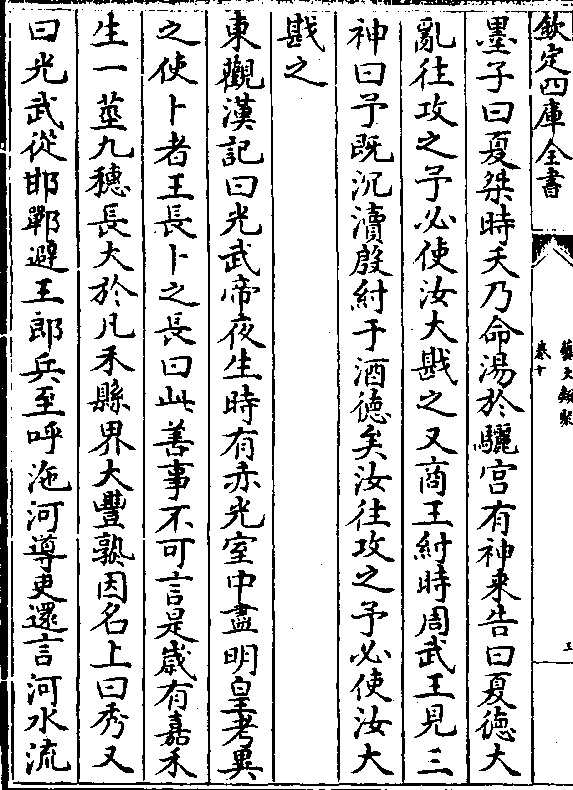 欽定四庫全書
藝文類聚
卷十
五
墨子曰夏桀時天乃命湯於驪宮有神來告曰夏徳大
亂往攻之予必使汝大戡之又商王紂時周武王見三
神曰予既沉瀆殷紂于酒徳矣汝往攻之予必使汝大
戡之
東觀漢記曰光武帝夜生時有赤光室中盡明皇考異
之使卜者王長卜之長曰此善事不可言是歳有嘉禾
生一莖九穗長大於凡禾縣界大豐熟因名上曰秀又
曰光武從邯鄲避王郎兵至呼沲河導吏還言河水流